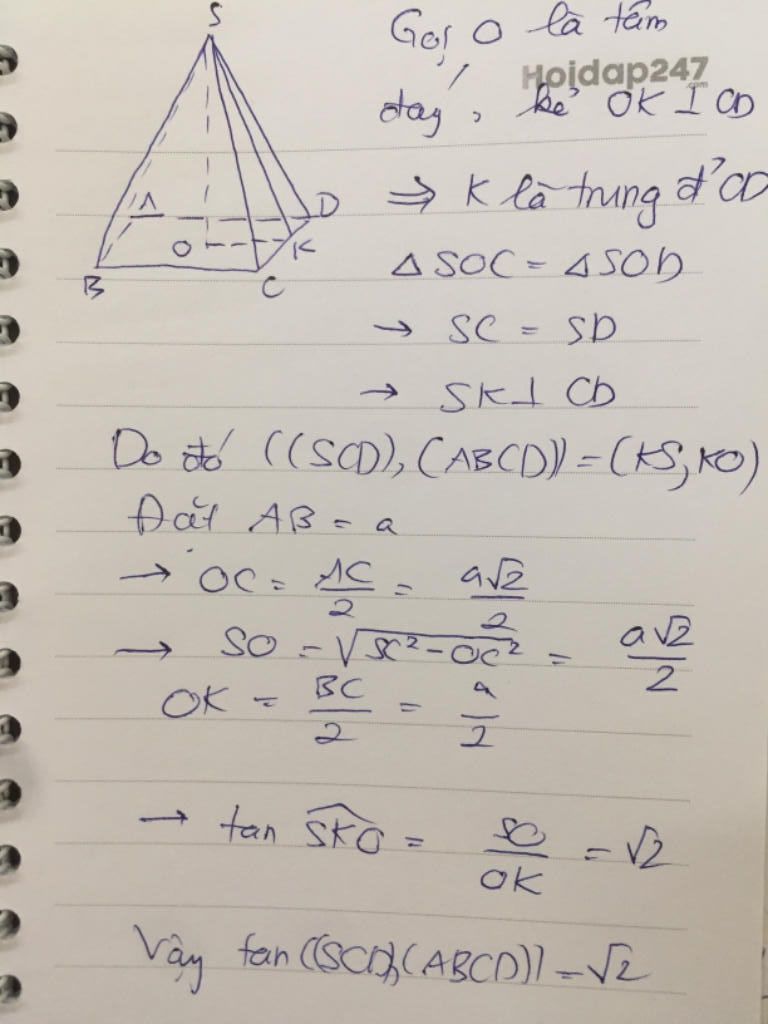 S
A
D
O
K
B
C
Gọi O là tâm
Hoidap247
.com
đáy, kẻ OK ⊥ CD
⇒ K là trung đ' CD
Δ SOC = Δ SOD
→ SC = SD
→ SK ⊥ CD
Do đó ((SCD), (ABCD)) = (KS, KO)
Đặt AB = a
→ OC = AC/2 = a√2/2
→ SO = √(SC² - OC²) = a√2/2
OK = BC/2 = a/2
→ tan SKO = SO/OK = √2
Vậy tan ((SCD), (ABCD)) = √2